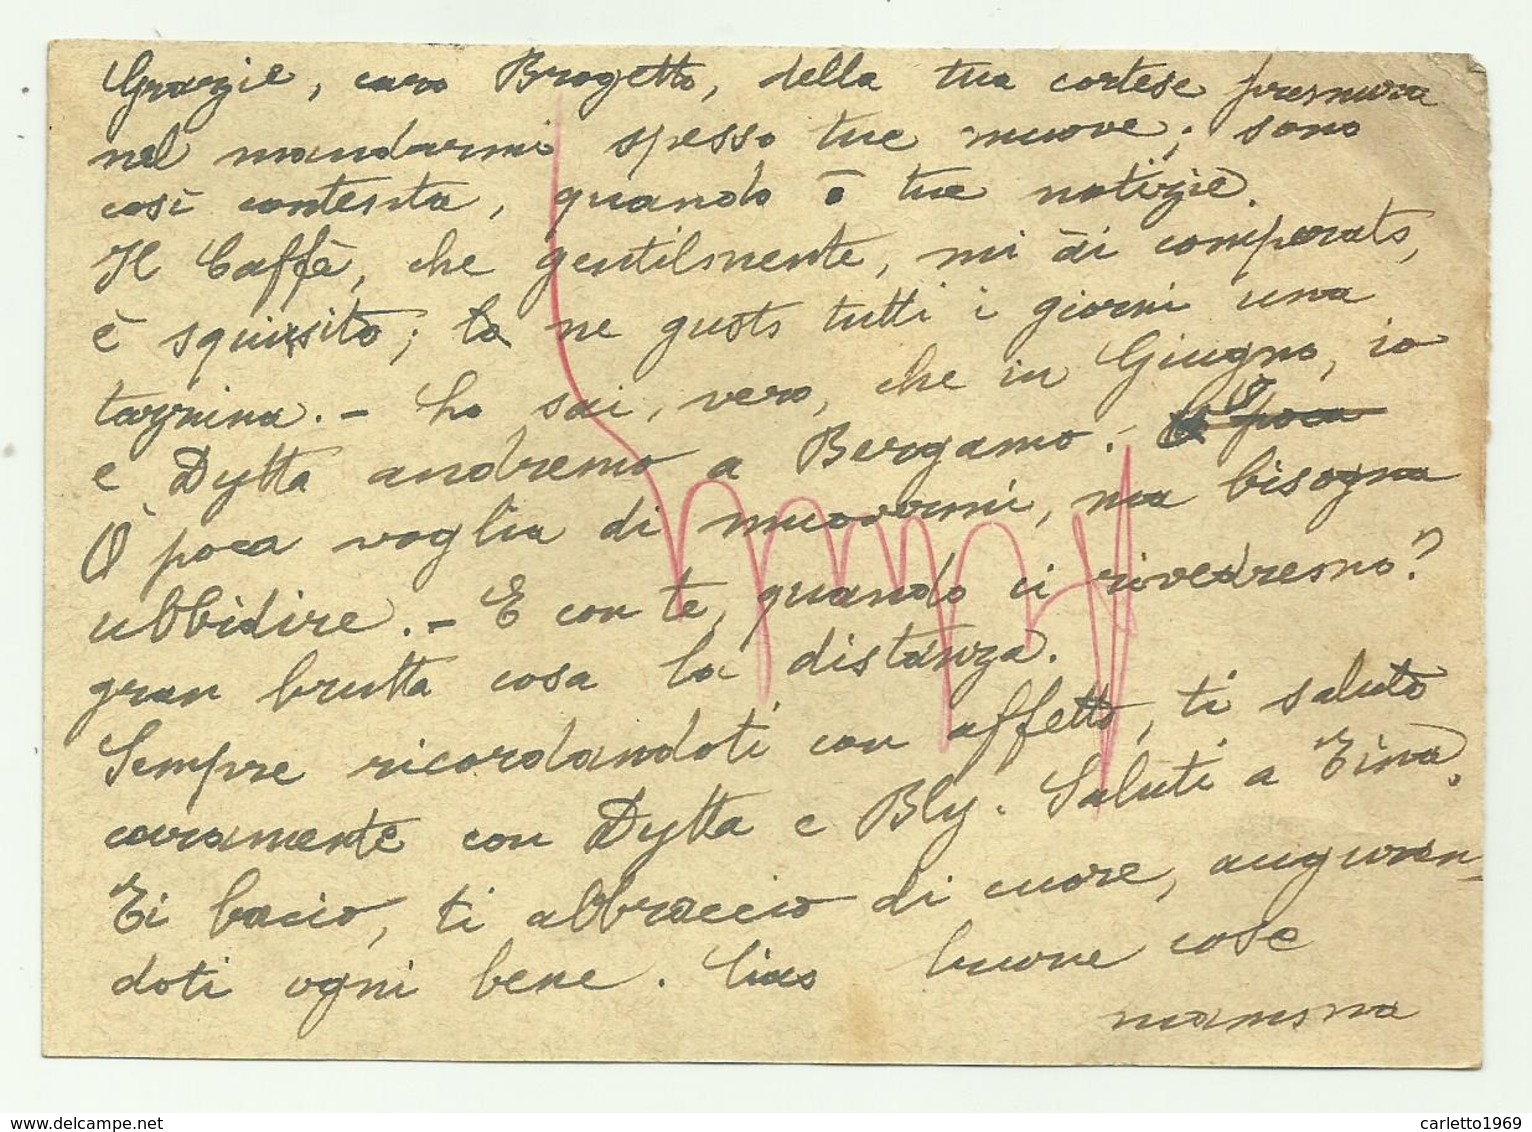 Grazie, caro Brogetto, della tua cortese premura
nel mandarmi spesso tue nuove; sono
così contenta, quando ō tue notizie.
Il Caffè, che gentilmente, mi ài comperato,
è squisito; lo ne gusto tutti i giorni una
tazzina. - Lo sai, vero, che in Giugno, io
e Dytta andremo a Bergamo. - poca
Ò poca voglia di muovermi, ma bisogna
ubbidire. - E con te, quando ci rivedremo?
gran brutta cosa la distanza.
Sempre ricordandoti con affetto, ti saluto
caramente con Dytta e Bly. Saluti a Tina.
Ti bacio, ti abbraccio di cuore, auguran-
doti ogni bene. Ciao buone cose
mamma
www.delcampe.net
carletto1969